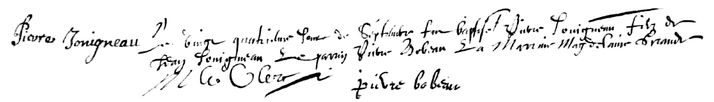 Pierre Jonigneau Le vingt quatriesme jour de Septembre fut baptisé Pierre Jonigneau filz de
Jean Jonigneau Le parrin Pierre Bobeau La Marrine Magdelaine Brande
M Le Clerc pierre bobeau